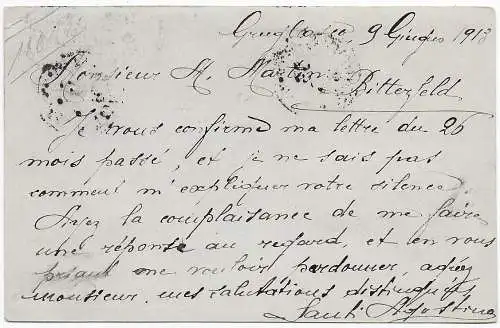 9 Giugno 1913
Monsieur M. Martin
Bitterfeld
Je vous confirme ma lettre du 26
mois passé, et je ne sais pas
comment m'expliquer votre silence.
Ayez la complaisance de me faire
une réponse au regard, et en vous
priant me vouloir pardonner, agréez
monsieur, mes salutations distinguées
Santi Agostino